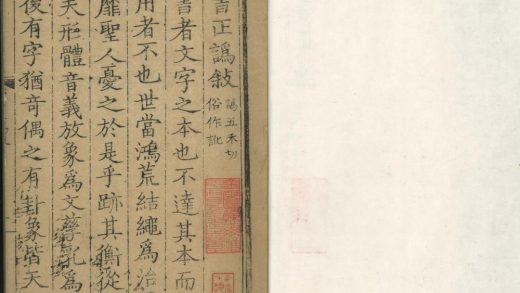 書正譌敘
譌五禾切
俗作訛
書者文字之本也不達其本而
用者不也世當鴻荒結繩為治
靡聖人憂之於是乎跡其衡從
天形體音義放象為文孳乳為
後有字猶奇偶之有卦象皆天